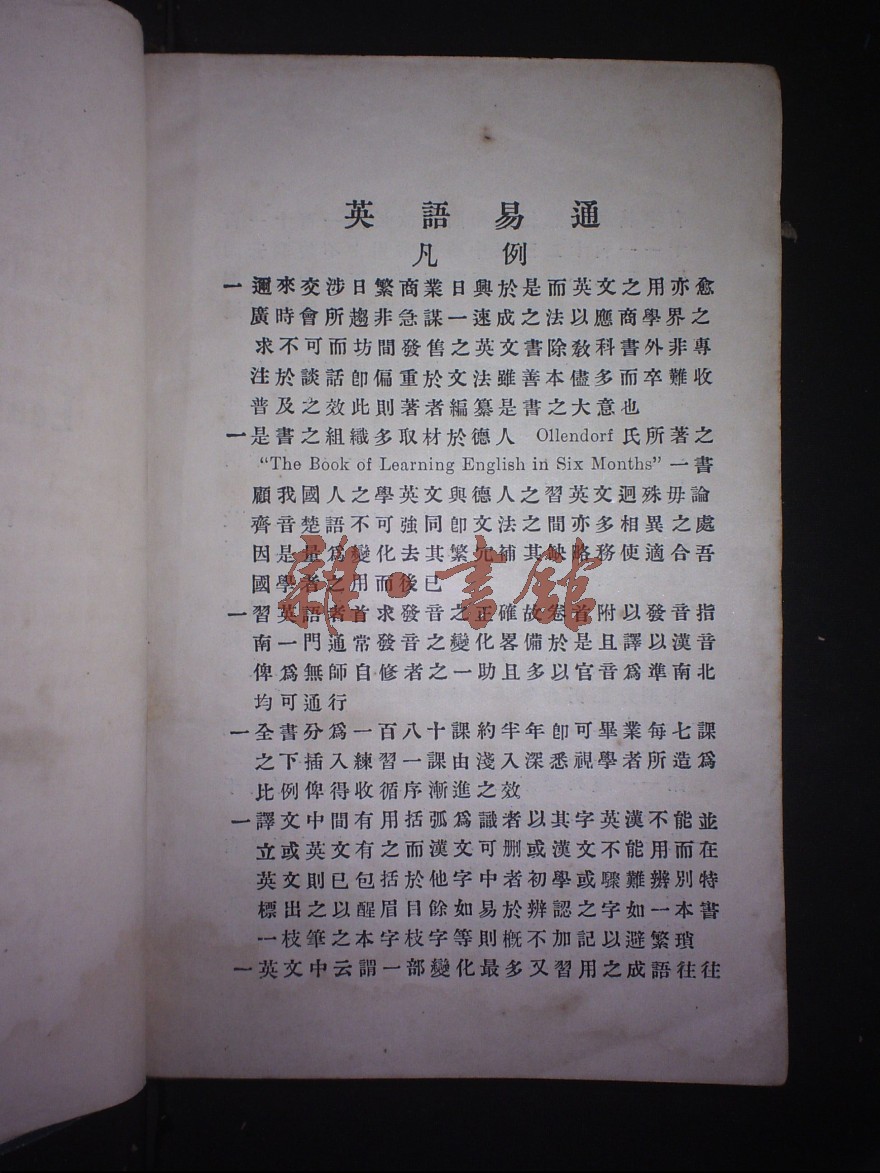 英語易通
凡例
一邇來交涉日繁商業日興於是而英文之用亦愈
廣時會所趨非急謀一速成之法以應商學界之
求不可而坊間發售之英文書除敎科書外非專
注於談話卽偏重於文法雖善本儘多而卒難收
普及之效此則著者編纂是書之大意也
一是書之組織多取材於德人 Ollendorf 氏所著之
“The Book of Learning English in Six Months” 一書
顧我國人之學英文與德人之習英文迥殊毋論
齊音楚語不可強同卽文法之間亦多相異之處
因是量爲變化去其繁冗補其缺略務使適合吾
國學者之用而後已
一習英語者首求發音之正確故卷首附以發音指
南一門通常發音之變化畧備於是且譯以漢音
俾爲無師自修者之一助且多以官音爲準南北
均可通行
一全書分爲一百八十課約半年卽可畢業每七課
之下插入練習一課由淺入深悉視學者所造爲
比例俾得收循序漸進之效
一譯文中間有用括弧爲識者以其字英漢不能並
立或英文有之而漢文可删或漢文不能用而在
英文則已包括於他字中者初學或驟難辨別特
標出之以醒眉目餘如易於辨認之字如一本書
一枝筆之本字枝字等則槪不加記以避繁瑣
一英文中云謂一部變化最多又習用之成語往往
雜·書館